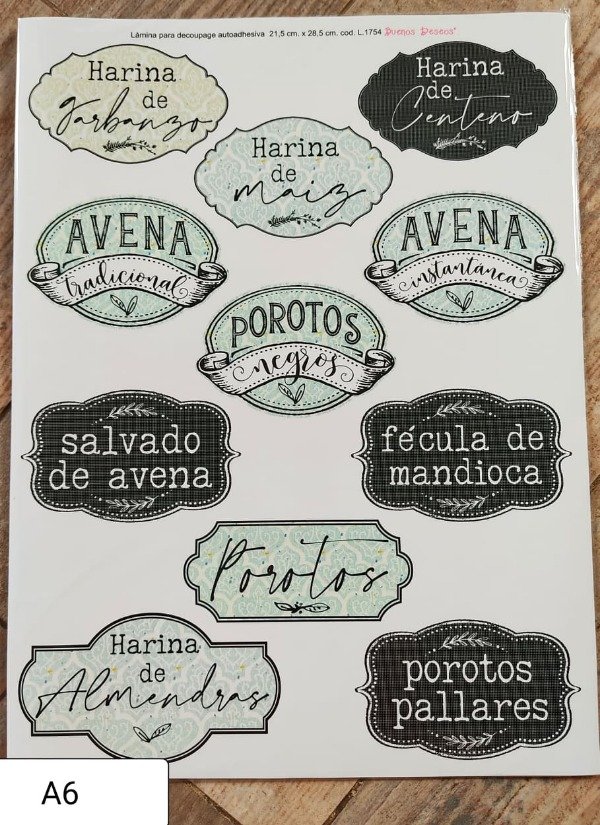 Lámina para decoupage autoadhesiva 21,5 cm. x 28,5 cm. cod. L.1754 Buenos Deseos
Harina
de
garbanzo
Harina
de
Centeno
Harina
de
maiz
AVENA
tradicional
AVENA
instantanea
POROTOS
negros
salvado
de avena
fécula de
mandioca
Porotos
Harina
de
Almendras
porotos
pallares
A6